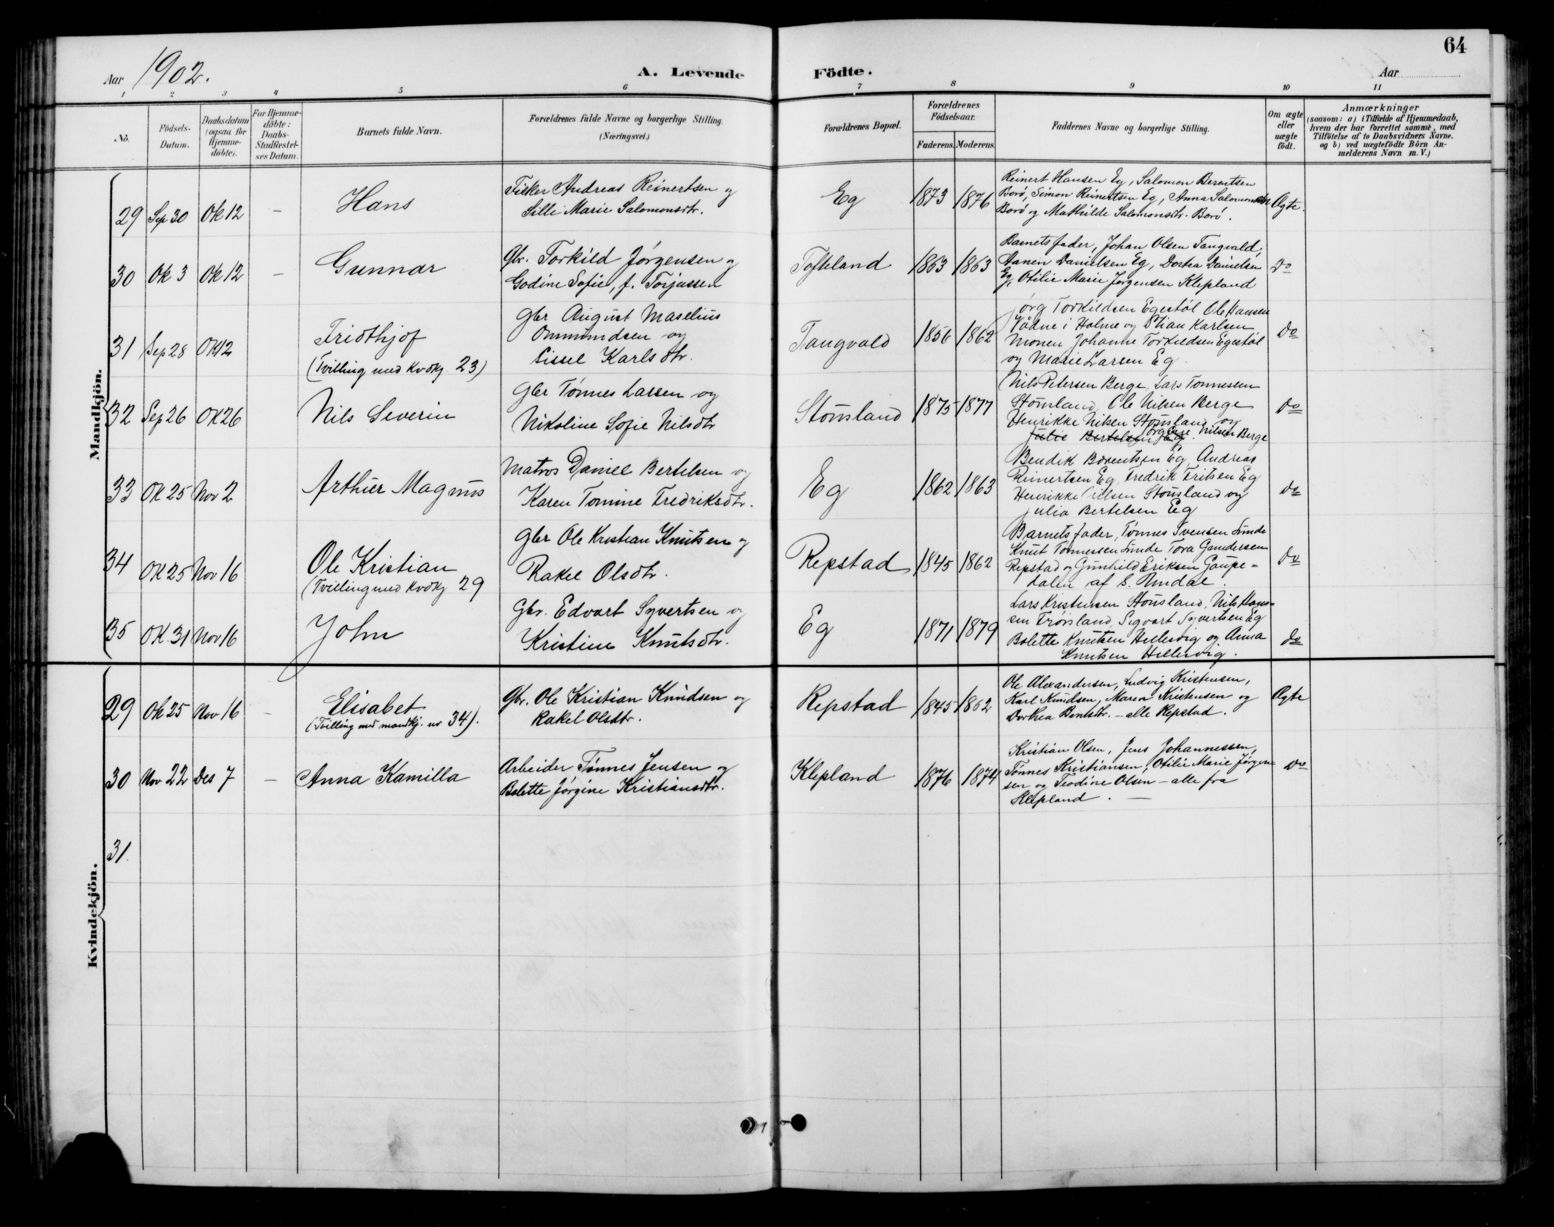 64
Aar 1902.
A. Levende Födte.
Aar
1 2 3 4 5 6 7 8 9 10 11
No.
Födsels-Datum.
Daabsdatum (ogsaa for Hjemme-döbte).
For Hjemme-döbte: Daabs-Stadfæstel-ses Datum.
Barnets fulde Navn.
Forældrenes fulde Navne og borgerlige Stilling. (Næringsvei.)
Forældrenes Bopæl.
Forældrenes Födselsaar.
Faderens. Moderens.
Faddernes Navne og borgerlige Stilling.
Om ægte eller uægte födt.
Anmærkninger
(saasom: a) i Tilfælde af Hjemmedaab,
hvem der har forrettet samme, med
Tilföielse af to Daabsvidners Navne.
og b) ved uægtefödte Börn An-
melderens Navn m. V.)
Mandkjön.
29 Sep 30 Ok 12 – Hans
Fisker Andreas Reinertsen og
Sille Marie Salomonsdtr.
Eg 1873 1876
Reinert Hansen Eg, Salomon Berntsen
Borø, Simon Reinertsen Eg, Anna Salomonsen
Borø og Mathilde Salomonsdtr. Borø.
Ægte.
30 Ok 3 Ok 12 – Gunnar
Gbr. Torkild Jørgensen og
Godine Sofie, f. Torjussen
Toftland 1863 1863
Barnets fader, Johan Olsen Tangvald,
Hanen Danielsen Eg, Dortea Danielsen
Eg, Otilie Marie Jørgensen Klepland
Do
31 Sep 28 Ok 12 Fridthjof
(Tvilling med Kvdkj 23)
Gbr August Maselius
Ommundsen og
Sissel Karlsdtr.
Tangvald 1856 1862
Jørg Torkildsen Egestøl Ole Hansen
Vådne i Holme og Stian Karlsen
Monen Johanne Torkildsen Egestøl
og Marie Larsen Eg.
do
32 Sep 26 Ok 26 Nils Severin
Gbr Tønnes Larsen og
Nikoline Sofie Nilsdtr
Stousland 1875 1877
Nils Petersen Berge, Lars Tønnessen
Stousland, Ole Nilsen Berge
Henrikke Nilsen Stousland og
Julie Bertelsen Jørgine Nilsen Berge
do
33 Ok 25 Nov 2 Arthur Magnus
Matros Daniel Bertelsen og
Karen Tomine Fredriksdtr.
Eg 1862 1863
Bendik Bærentsen Eg Andreas
Reinertsen Eg, Fredrik Fritsen Eg
Henrikke Nilsen Stousland og
Julia Bertelsen Eg
do
34 Ok 25 Nov 16 Ole Kristian
(Tvilling med Kvdkj 29
Gbr Ole Kristian Knutsen og
Rakel Olsdtr.
Repstad 1845 1862
Barnets fader, Tønnes Svensen Sinde
Knut Tønnessen Sinde Tora Gundersen
Repstad og Gunhild Eriksen Gaupe-
dalen af S. Undal.
do
35 Ok 31 Nov 16 John
Gbr. Edvart Syvertsen og
Kristine Knutsdtr.
Eg 1871 1879
Lars Kristensen Stousland, Nils Hans-
sen Frøisland, Sigvart Syvertsen Eg
Bolette Knutsen Hellevig og Anna
Knutsen Hellevig.
do
Kvindekjön.
29 Ok 25 Nov 16 – Elisabet
(Tvilling med mandkj. nr 34).
Gbr. Ole Kristian Knudsen og
Rakel Olsdtr.
Repstad 1845 1862
Ole Alexandersen, Ludvig Kristensen,
Karl Knudsen, Maren Kristensen og
Dorthea Bentsdtr. – alle Repstad.
Ægte
30 Nov 22 Des 7 – Anna Kamilla
Arbeider Tønnes Jensen og
Bolette Jørgine Kristiansdtr.
Klepland 1876 1874
Kristian Olsen, Jens Johannessen,
Tønnes Kristiansen, Otilie Marie Jørgen-
sen og Teodine Olsen – alle fra
Klepland. –
Do
31.